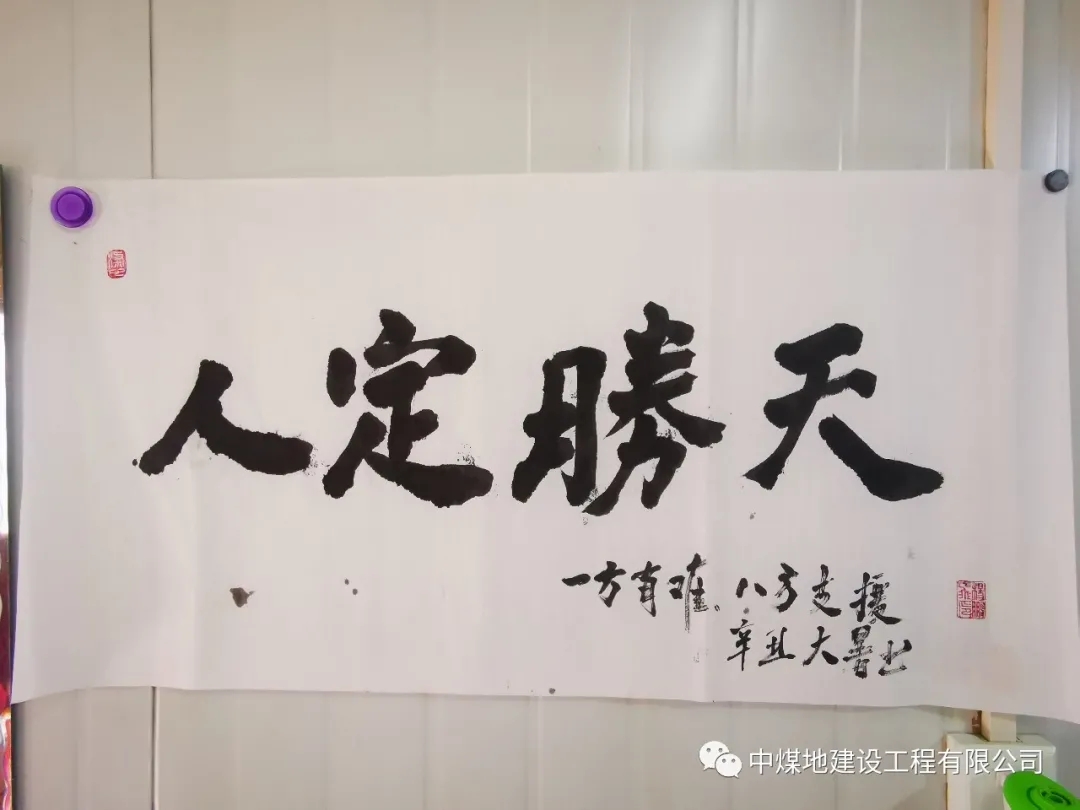 人定勝天
一方有难、八方支援
辛丑大暑书
中煤地建设工程有限公司